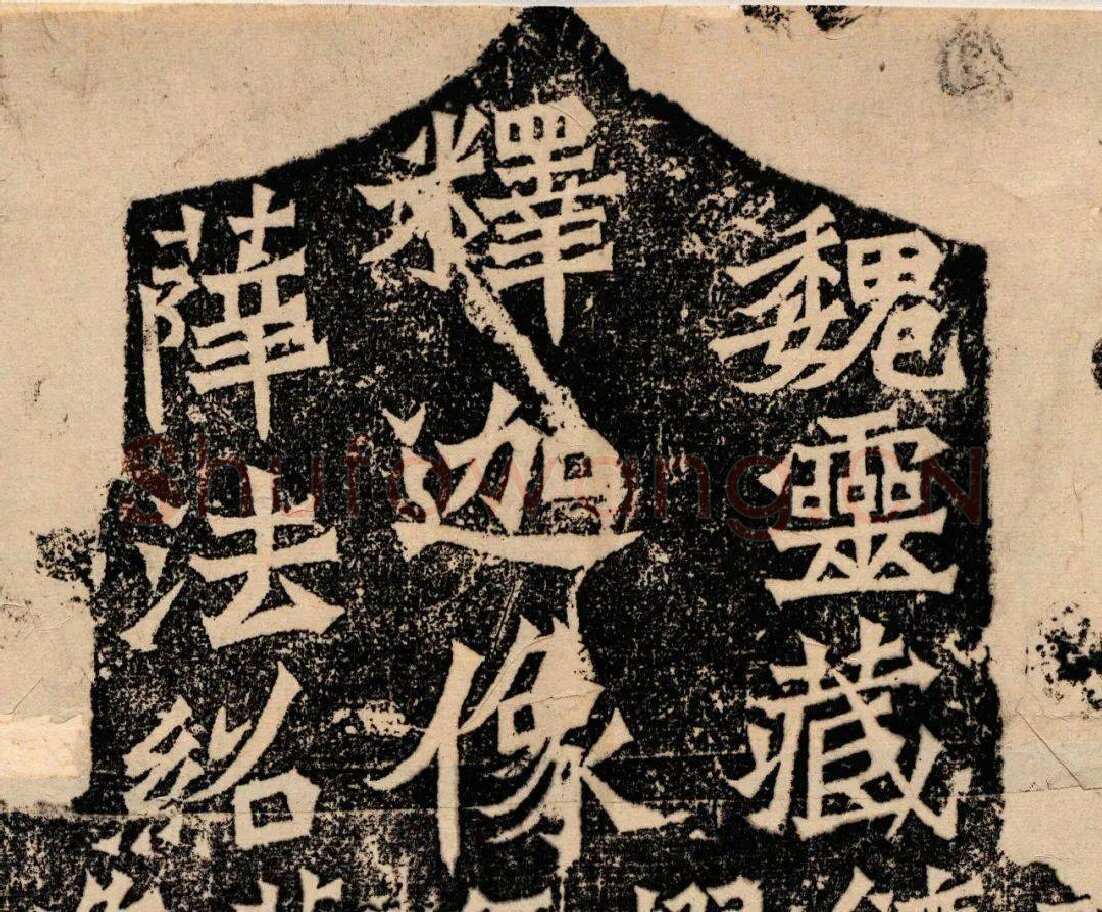 魏靈藏
釋迦像
薛法紹
Shufawang.CN